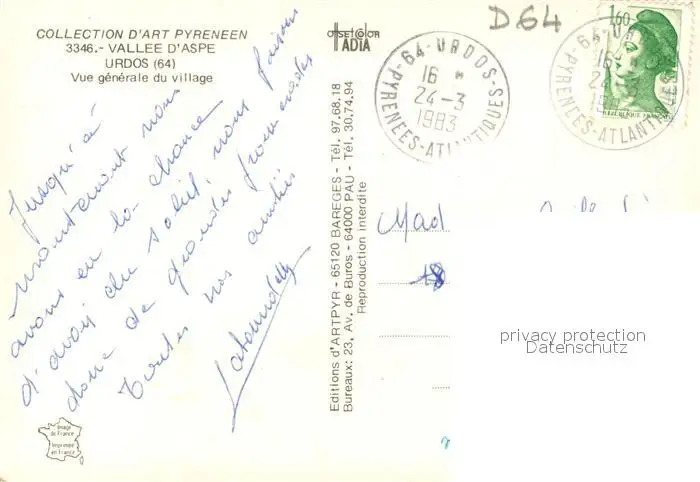 COLLECTION D'ART PYRENEEN
3346.- VALLEE D'ASPE
URDOS (64)
Vue générale du village
Jusqu'à
maintenant nous
avons eu la chance
d'avoir du soleil, nous faisons
donc de grandes promenades
Toutes nos amitiés
OFFSET COLOR
TADIA
Editions d'ARTPYR - 65120 BAREGES - Tél. 97.68.18
Bureaux: 23, Av. de Buros - 64000 PAU - Tél. 30.74.94
Reproduction interdite
D64
64-URDOS-
16 *
24-3
1983
PYRENEES-ATLANTIQUES
1,60
REPUBLIQUE FRANCAISE
64-UR
16
24
PYRENEES-ATLANTIQUES
Mad
privacy protection
Datenschutz
Image
de France
Imprimée
en France